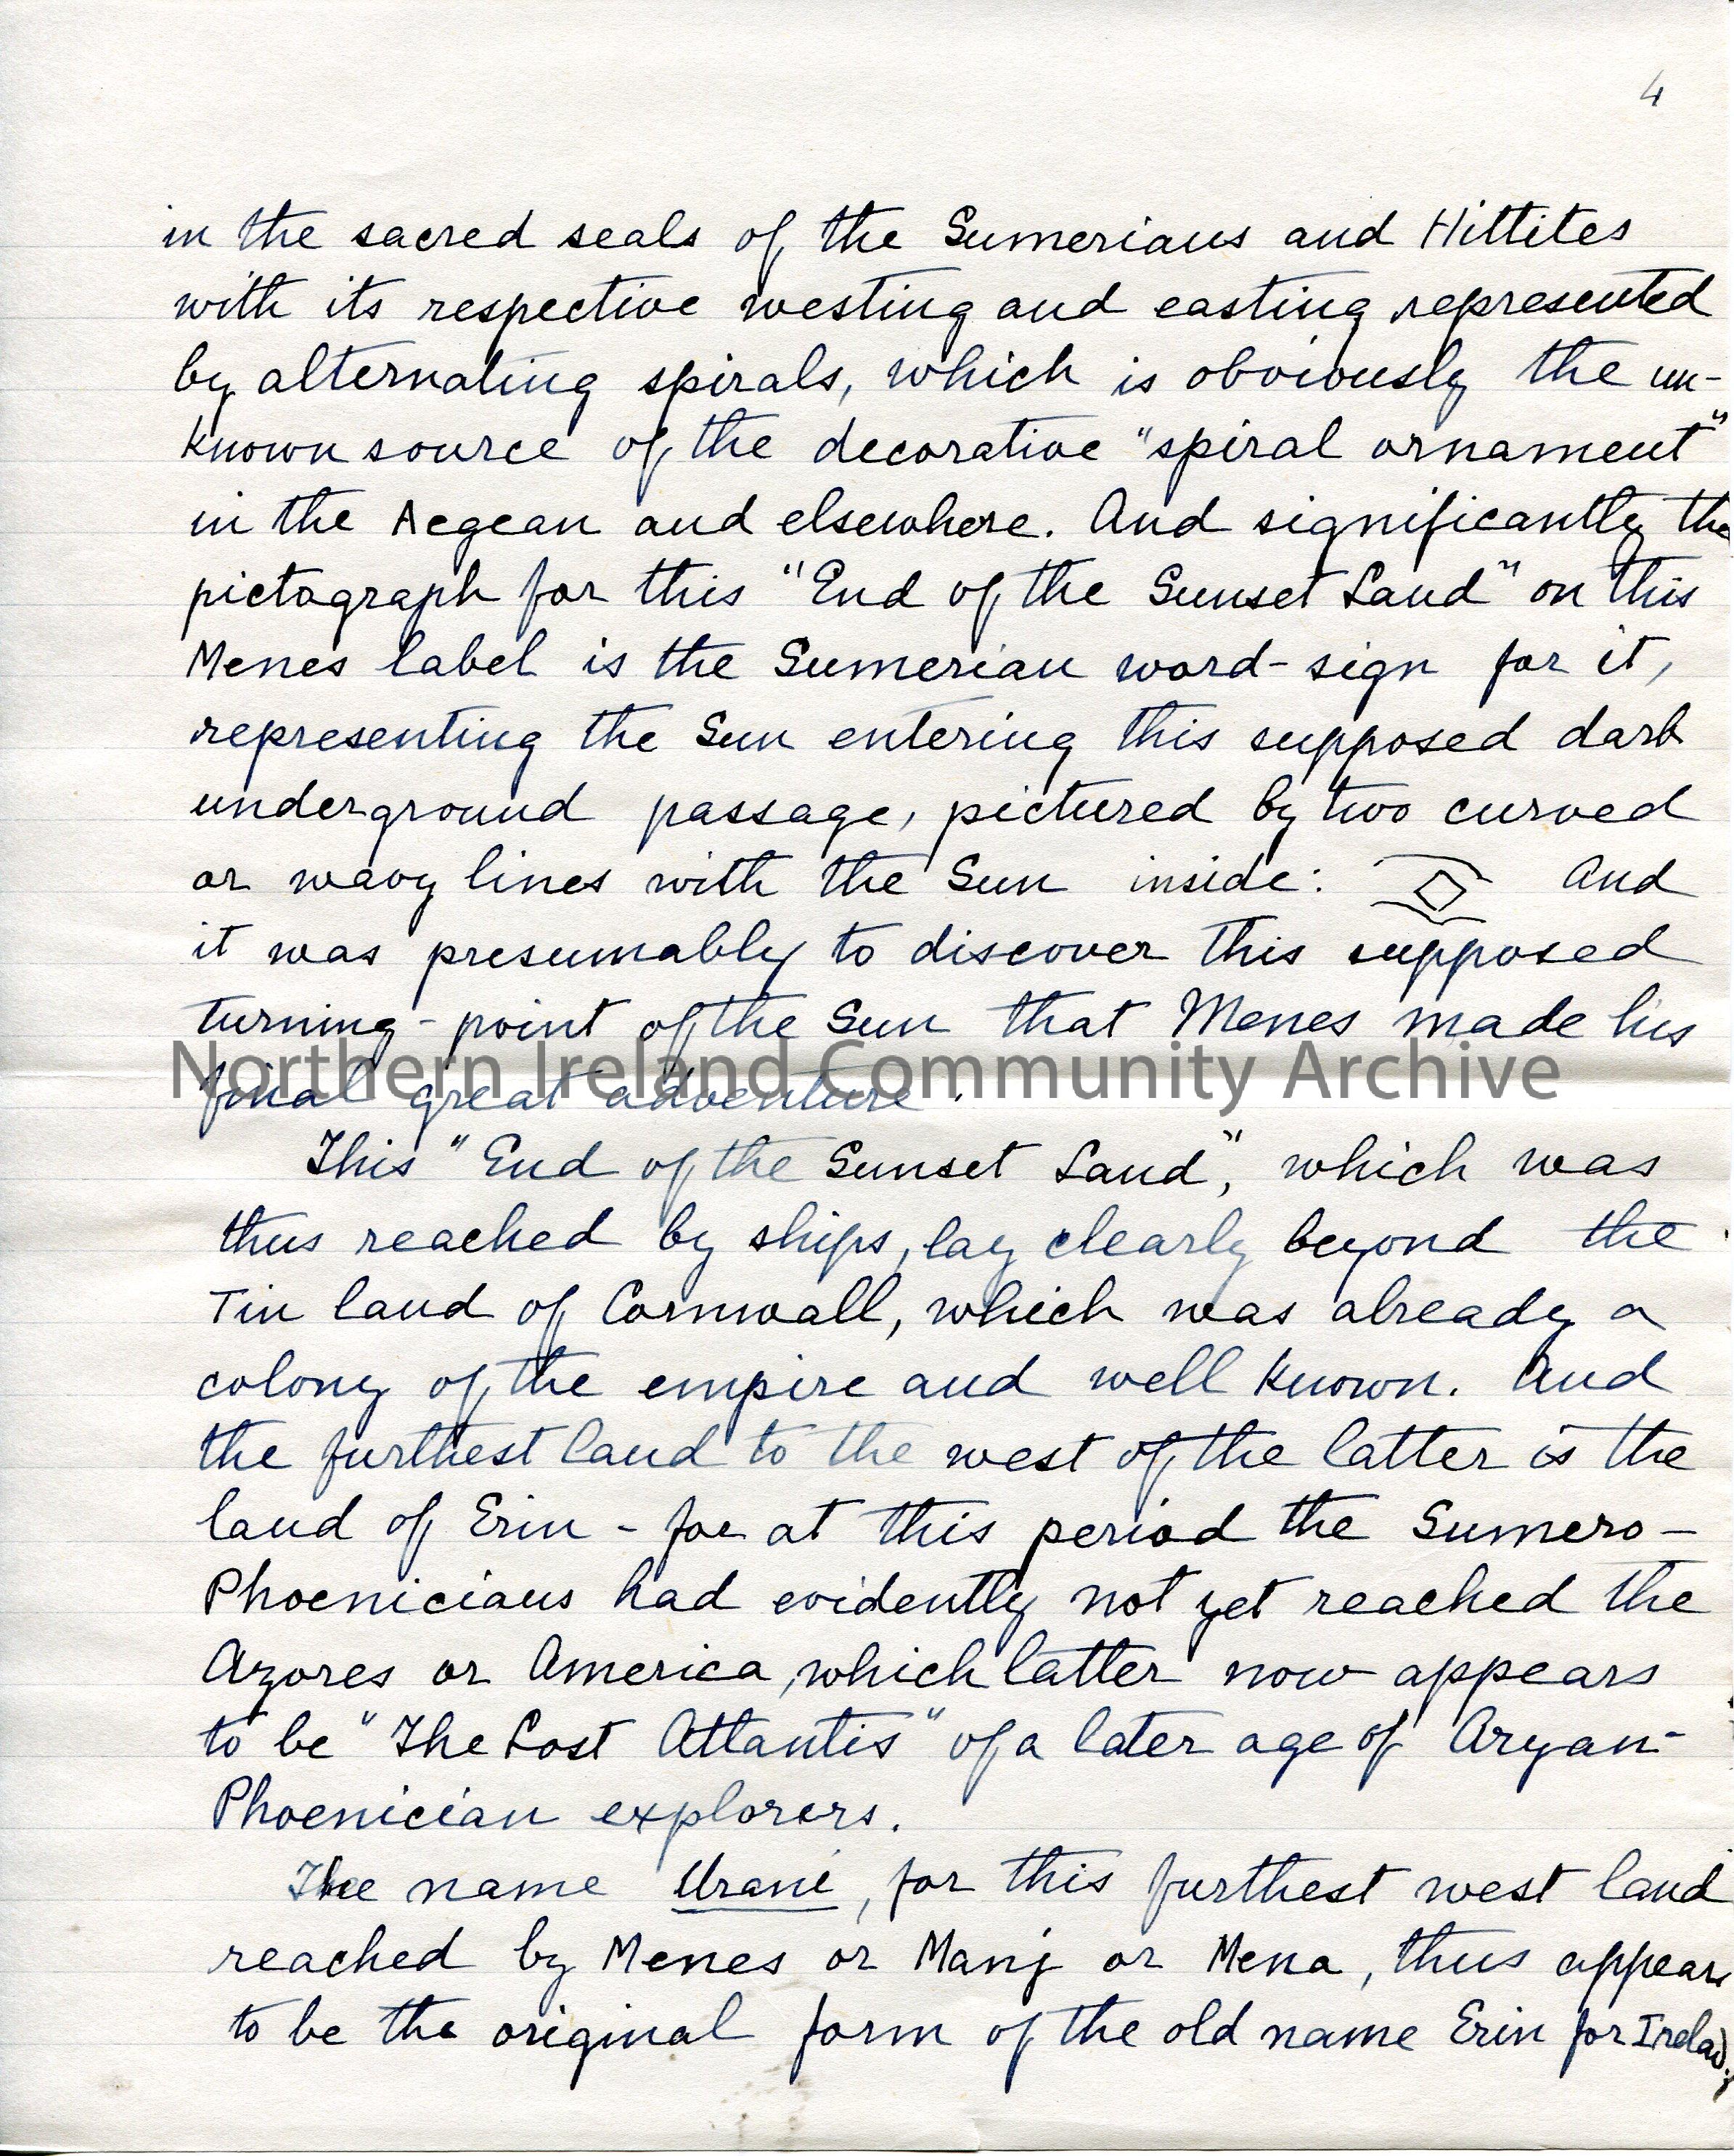 4
in the sacred seals of the Sumerians and Hittites
with its respective westing and easting represented
by alternating spirals, which is obviously the un-
known source of the decorative "spiral ornament"
in the Aegean and elsewhere. And significantly the
pictagraph for this "End of the Sunset Land" on this
Menes label is the Sumerian word-sign for it,
representing the Sun entering this supposed dark
underground passage, pictured by two curved
or wavy lines with the Sun inside: And
it was presumably to discover this supposed
turning-point of the Sun that Menes made his
Northern Ireland Community Archive
final great adventure.
This "End of the Sunset Land", which was
thus reached by ships, lay clearly beyond the
Tin land of Cornwall, which was already a
colony of the empire and well known. And
the furthest land to the west of the latter is the
land of Erin - for at this period the Sumero-
Phoenicians had evidently not yet reached the
Azores or America, which latter now appears
to be "The Lost Atlantis" of a later age of Aryan-
Phoenician explorers.
The name Urani, for this furthest west land
reached by Menes or Manj or Mena, thus appears
to be the original form of the old name Erin for Ireland;